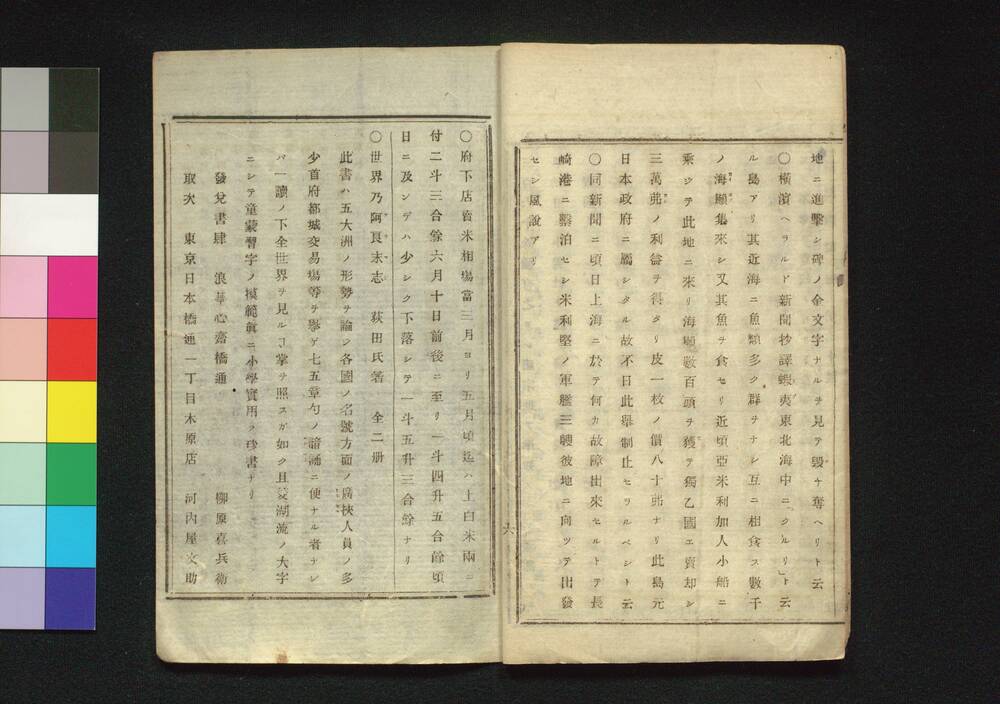 地ニ進擊シ碑ノ金文字ナルヲ見テ毀ケ奪ヘリト云
〇横濱ヘラルド新聞抄譯蝦夷東北海中ニ「クルリ」ト云
ル島アリ其近海ニ魚類多ク群ヲナシ互ニ相食ス數千
ノ海獺集來シ又其魚ヲ食セリ近頃亞米利加人小船ニ
乘ジテ此地ニ來リ海獺數百頭ヲ獲テ獨乙國エ賣却シ
三萬弗ノ利益ヲ得タリ皮一枚ノ價八十弗ナリ此島元
日本政府ニ屬シタル故不日此擧制止セラルベシト云
〇同新聞ニ頃日上海ニ於テ何カ故障出來セルトテ長
崎港ニ繫泊セシ米利堅ノ軍艦三艘彼地ニ向ツテ出發
セシ風說アリ
六
〇府下店賣米相場當三月ヨリ五月頃迄ハ上白米兩ニ
付二斗三合餘六月十日前後ニ至リ一斗四升五合餘頃
日ニ及ンデハ少シク下落シテ一斗五升三合餘ナリ
〇世界乃阿良末志 萩田氏著 全二册
此書ハ五大洲ノ形勢ヲ論ジ各國ノ名號方面ノ廣狹人員ノ多
少首府都城交易場等ヲ擧ゲ七五章句ノ諳誦ニ便ナル者ナレ
バ一讀ノ下全世界ヲ見ルヿ掌ヲ照スガ如ク且菱湖流ノ大字
ニシテ童蒙習字ノ模範眞ニ小學實用ノ珍書ナリ
發兌書肆 浪華心齋橋通 柳原喜兵衞
取次 東京日本橋通一丁目木原店 河内屋文助